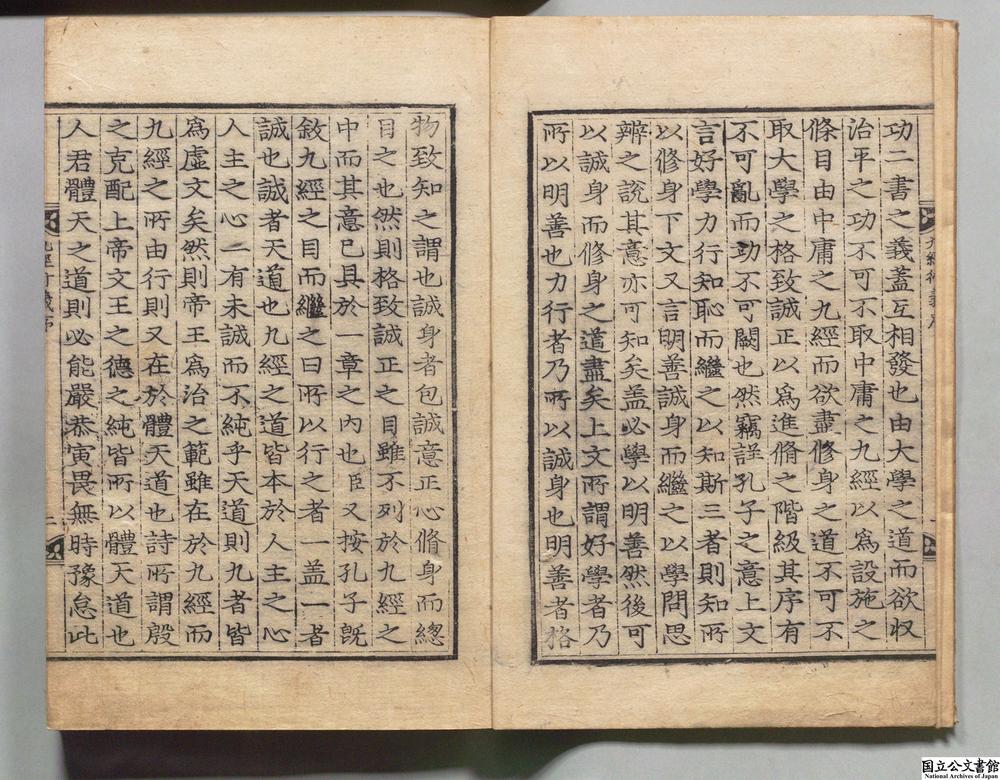 功二書之義蓋互相發也由大學之道而欲収
治平之功不可不取中庸之九經以爲設施之
條目由中庸之九經而欲盡修身之道不可不
取大學之格致誠正以爲進脩之階級其序有
不可亂而功不可闕也然竊詳孔子之意上文
言好學力行知恥而繼之以知斯三者則知所
以修身下文又言明善誠身而繼之以學問思
辨之說其意亦可知矣盖必學以明善然後可
以誠身而修身之道盡矣上文所謂好學者乃
所以明善也力行者乃所以誠身也明善者格
物致知之謂也誠身者包誠意正心脩身而緫
目之也然則格致誠正之目雖不列於九經之
中而其意已具於一章之內也臣又按孔子旣
敘九經之目而繼之曰所以行之者一盖一者
誠也誠者天道也九經之道皆本於人主之心
人主之心一有未誠而不純乎天道則九者皆
爲虛文矣然則帝王爲治之範雖在於九經而
九經之所由行則又在於體天道也詩所謂殷
之克配上帝文王之德之純皆所以體天道也
人君體天之道則必能嚴恭寅畏無時豫怠此
九經衍義序
一
九經衍義序
二
国立公文書館
National Archives of Japan